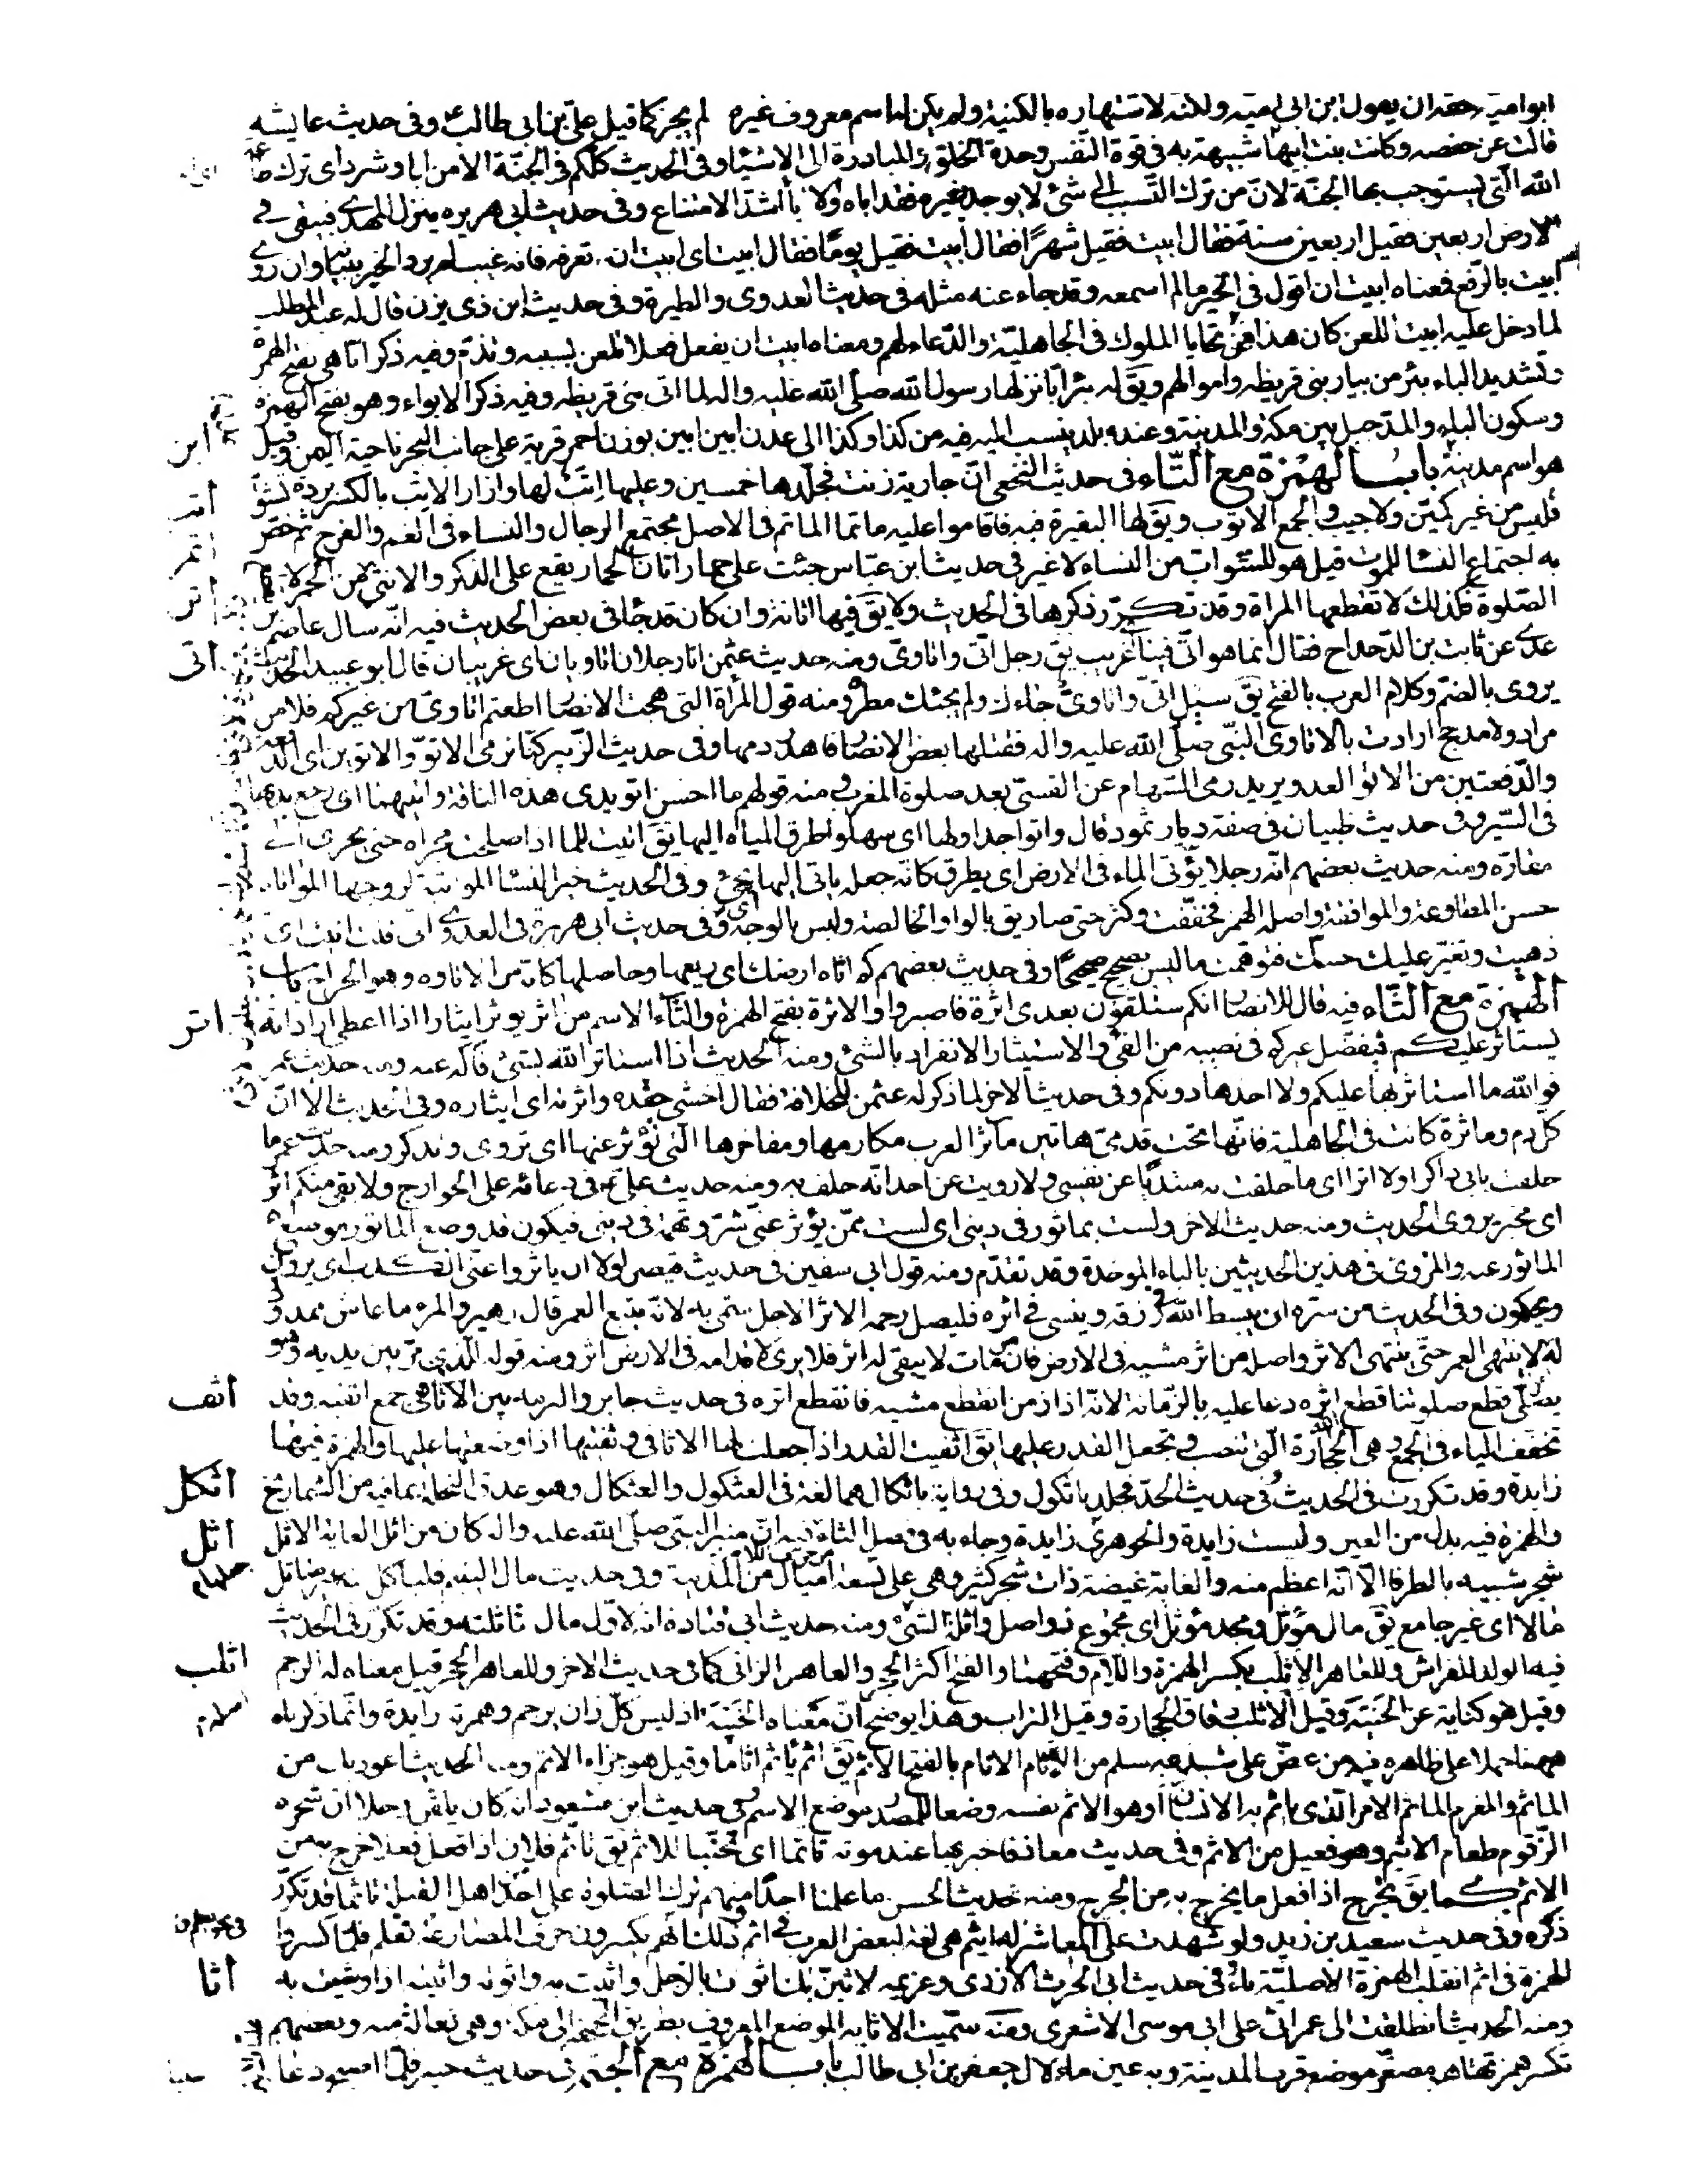 ابو امية حقه ان يقول ابن ابى امية ولكنه لاشتهاره بالكنية ولم يكن له اسم معروف غيره لم يجز كما قيل على بن ابى طالب وفى حديث عايشه
قالت عن حفصه وكانت بنت ابيها شبيهة به فى قوة النفس وحدة الخلق والمبادرة الى الاشياء وفى الحديث كلكم فى الجنة الا من ابا وشرد اى ترك طاعة
الله التى يستوجب بها الجنة لان من ترك التسبب الى شئ لا يوجد بغيره فقد اباه والابا اشد الامتناع وفى حديث ابى هريره ينزل المهدى فيبقى فى
الارض اربعين فقيل اربعين سنة فقال ابيت فقيل شهرا فقال ابيت فقيل يوما فقال ابيت اى ابيت ان تعرفه فانه غيب لم يرد الخبر ببيانه وان روى
ابيت بالرفع فمعناه ابيت ان اقول فى الخبر ما لم اسمعه وقد جاء عنه مثله فى حديث العدوى والطيرة وفى حديث ابن ذى يزن قال له عبد المطلب
لما دخل عليه ابيت اللعن كان هذا من تحايا الملوك فى الجاهلية والدعاء لهم ومعناه ابيت ان يفعل فعلا تلعن بسببه وتذم وفيه ذكر ابا هى بفتح الهمزة
وتشديد الباء بئر من بيار بنى قريظه واموالهم ويق له بئر ابا نزلها رسول الله صلى الله عليه واله لما اتى بنى قريظه وفيه ذكر الابواء وهو بفتح الهمزة
وسكون الباء والمد جبل بين مكة والمدينة وعنده بلد ينسب اليه فيه من كذا وكذا الى عدن ابين ابين بوزن احمر قرية على جانب البحر ناحية اليمن وقيل
ابن
هو اسم مدينة باب الهمزة مع التاء فى حديث النخعى ان جارية زنت فجلدها خمسين وعليها اتب لها وازار الاتب بالكسر بردة تشق
اتب
فتلبس من غير كمين ولا جيب والجمع الاتوب ويق لها البقيرة فيه فاقاموا عليه ماتما الماتم فى الاصل مجتمع الرجال والنساء فى الغم والفرح ثم خص
اتم
به اجتماع النسا للموت قيل هو للشواب من النساء لا غير فى حديث ابن عباس جئت على حمار اتان الحمار يقع على الذكر والانثى
اتن
الصلوة فكذلك لا تقطعها المراة وقد تكرر ذكرها فى الحديث ولا يق فيها اتانة وان كان قد جا فى بعض الحديث فيه انه سال عاصم بن
عدى عن ثابت بن الدحداح فقال انما هو اتى فينا اى غريب يق رجل اتى واتاوى ومنه حديث عثمن انا رجلان اتاويان اى غريبان قال ابو عبيد الحديث
اتى
يروى بالضم وكلام العرب بالفتح يق سيل اتى واتاوى جاءك ولم يجئك مطره ومنه قول المراة التى هجت الانصار اطعتم اتاوى من غيركم فلا من
مراد ولا مذحج ارادت بالاتاوى النبى صلى الله عليه واله فقتلها بعض الانصار فاهدر دمها وفى حديث الزبير كنا نرمى الاتو والاتوين اى الدفعة
والدفعتين من الاتو العدو يريد رمى السهام عن القسى بعد صلوة المغرب ومنه قولهم ما احسن اتو يدى هذه الناقة واتيهما اى رجع يديها
فى السير وفى حديث ظبيان فى صفة ديار ثمود قال واتوا جداولها اى سهلوا طرق المياه اليها يق اتيت للماء اذا اصلحت مجراه حتى يجرى الى
مغاره ومنه حديث بعضهم انه رجلا يؤتى الماء فى الارض اى يطرق كانه جعله ياتى اليها اى يجئ وفى الحديث خير النسا المواتية لزوجها المواتاة
حسن المطاوعة والموافقة واصله الهمز فخففت وكثر حتى صار يق بالواو الخالصة وليس بالوجه وفى حديث ابى هريرة فى العدوى انى قلت اتيت اى
ذهبت وتغير عليك حسك فتوهمت ما ليس بصحيح صحيحا وفى حديث بعضهم كم اتاه ارضك اى ريعها وحاصلها كانه من الاتاوه وهو الخراج باب
الهمزة مع الثاء فيه قال للانصار انكم ستلقون بعدى اثرة فاصبروا والاثرة بفتح الهمزة والثاء الاسم من اثر يوثر ايثارا اذا اعطى اراد انه
اثر
يستاثر عليكم فيفضل غيركم فى نصيبه من الفئ والاستيثار الانفراد بالشئ ومنه الحديث اذا استاثر الله بشئ فاله عنه ومنه حديث عمر
فوالله ما استاثر بها عليكم ولا اخذها دونكم وفى حديثه الاخر لما ذكر له عثمن للخلافة فقال اخشى حفده واثرته اى ايثاره وفى الحديث الا ان
كل دم وماثرة كانت فى الجاهلية فانها تحت قدمى هاتين ماثر العرب مكارمها ومفاخرها التى تؤثر عنها اى تروى وتذكر ومنه حديث عمر ما
حلفت بابى ذاكرا ولا اثرا اى ما حلفت به مبتدئا عن نفسى ولا رويت عن احد انه حلف به ومنه حديث على ع فى دعائه على الخوارج ولا بقى منكم اثر
اى مخبر يروى الحديث ومنه حديثه الاخر ولست بماثور فى دينى اى لست ممن يؤثر عنى شر وتهمة فى دينى فيكون قد وضع الماثور موضع
الماثور عنه والمروى فى هذين الحديثين بالباء الموحدة وقد تقدم ومنه قول ابى سفين فى حديث قيصر لولا ان ياثروا عنى الكذب اى يروون
ويحكون وفى الحديث من سره ان يبسط الله فى رزقه وينسى فى اثره فليصل رحمه الاثر الاجل سمى به لانه يتبع العمر قال زهير والمرء ما عاش ممدود
له لا ينتهى العمر حتى ينتهى الاثر واصله من اثر مشيه فى الارض فان مات لا يبقى له اثر فلا يرى لاقدامه فى الارض اثر ومنه قوله للذى مر بين يديه وهو
يصلى قطع صلوتنا قطع اثره دعا عليه بالزمانة لانه اذا زمن انقطع مشيه فانقطع اثره فى حديث جابر والبرمة بين الاثافى هى جمع اثفية وقد
اثف
تخفف الياء فى الجمع وهى الحجارة التى تنصب وتجعل القدر عليها يق اثفيت القدر اذا جعلت لها الاثافى وثفيتها اذا وضعتها عليها والهمزة فيها
زايدة وقد تكررت فى الحديث فى حديث الحد فجلد باثكول وفى رواية باثكال هما لغة فى العثكول والعثكال وهو عذق النخلة بما فيه من الشماريخ
اثكل
والهمزة فيه بدل من العين وليست زايدة والجوهرى زايدة وجاء به فى فصل الثاء فيه ان منبر النبى صلى الله عليه واله كان من اثل الغابة الاثل
اثل
شجر شبيه بالطرفا الا انه اعظم منه والغابة غيضة ذات شجر كثير وهى على تسعة اميال من المدينة وفى حديث مال اليتيم فلياكل منه غير متاثل
مالا اى غير جامع يق مال مؤثل ومجد مؤثل اى مجموع ذو اصل واثلة الشئ ومنه حديث ابى قتادة انه لاول مال تاثلته وقد تكرر فى الحديث
فيه الولد للفراش وللعاهر الاثلب بكسر الهمزة واللام وفتحهما والفتح اكثر الحجر والعاهر الزانى كما فى حديث الاخر وللعاهر الحجر قيل معناه له الرجم
اثلب
وقيل هو كناية عن الخيبة وقيل الاثلب دقاق الحجارة وقيل التراب وهذا يوضح ان معناه الخيبة اذ ليس كل زان يرجم وهمزته زايدة وانما ذكرناه
ههنا حملا على ظاهره فيه من عض على شبدعه سلم من الاثام الاثام بالفتح الاثم يق اثم ياثم اثاما وقيل هو جزاء الاثم ومنه الحديث اعوذ بك من
الماثم والمغرم الماثم الامر الذى ياثم به الانسان او هو الاثم نفسه وضعا للمصدر موضع الاسم وفى حديث ابن مسعود انه كان يلقن رجلا ان شجره
الزقوم طعام الاثيم وهو فعيل من الاثم وفى حديث معاذ فاخبر بها عند موته تاثما اى تجنبا للاثم يق تاثم فلان اذا فعل فعلا خرج به من
الاثم كما يق تحرج اذا فعل ما يخرج به من الحرج ومنه حديث الحسن ما علمنا احدا منهم ترك الصلوة على احد من اهل القبلة تاثما وقد تكرر
ذكره وفى حديث سعيد بن زيد ولو شهدت على العاشر لم ايثم هى لغة لبعض العرب فى اثم وذلك انهم يكسرون حرف المضارعة فى نحو نعلم وتعلم فلما كسروا
الهمزة فى اثم انقلبت الهمزة الاصلية ياء فى حديث ابى الحرث الازدى وغريمه لاثين بك اثوت بالرجل واثيت به واثوته واثيته اذا وشيت به
اثا
ومنه الحديث انطلقت الى عمر اثى على ابى موسى الاشعرى ومنه سميت الاثاية الموضع المعروف بطريق الجحفة الى مكة وهى فعالة منه وبعضهم
تكسر همزتها اثيل مصغر موضع قرب المدينة وبه عين ماء لال جعفر بن ابى طالب باب الهمزة مع الجيم فى حديث خيبر فلما اصبح دعا